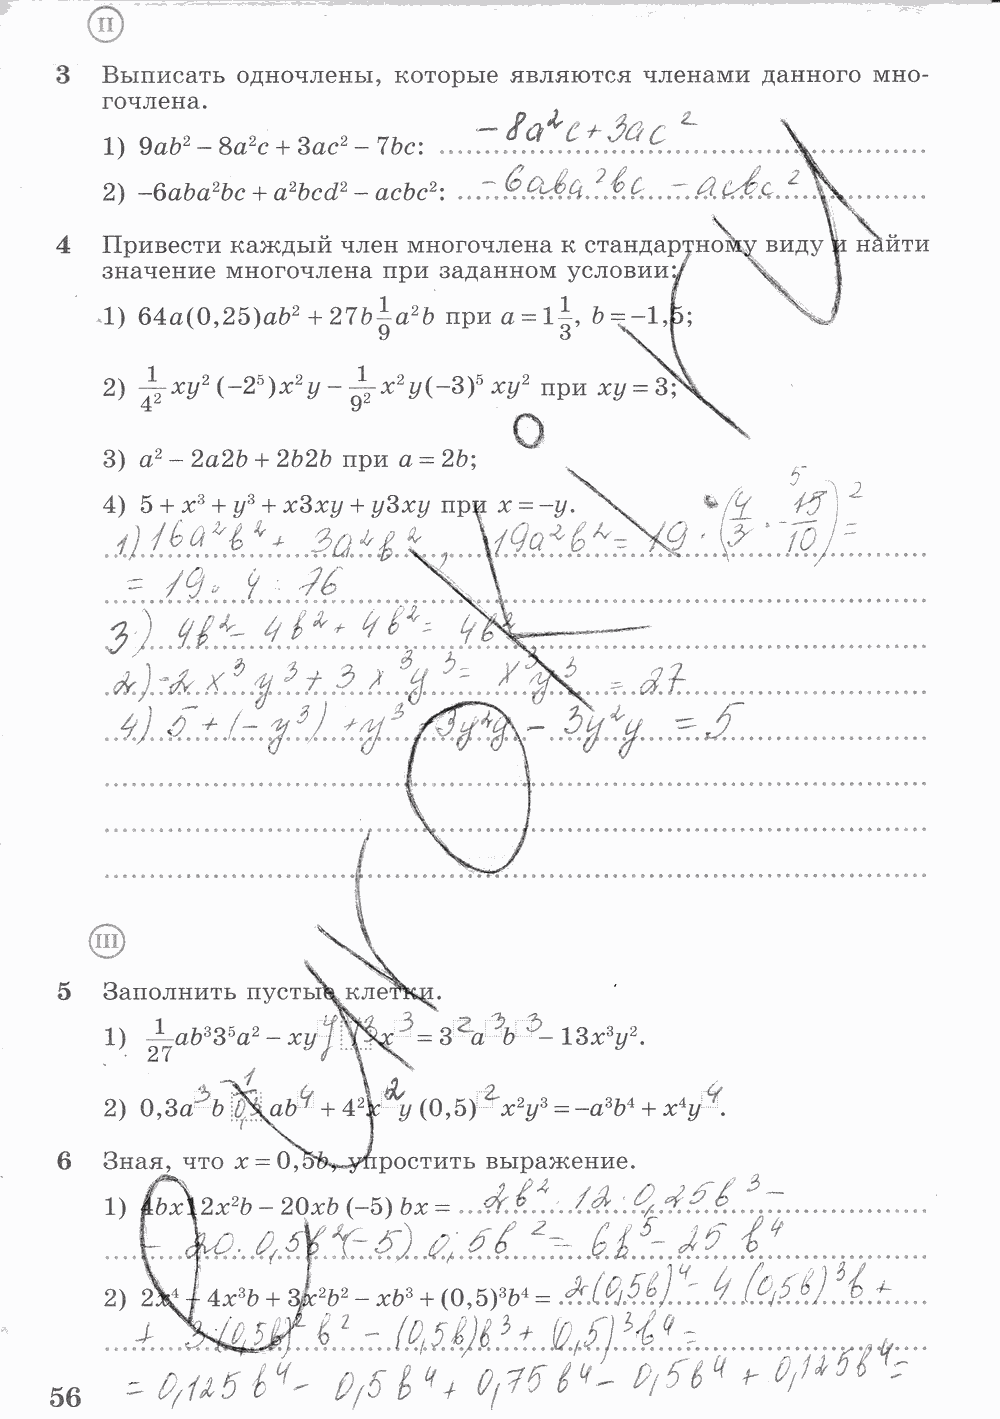 II
3 Выписать одночлены, которые являются членами данного мно-
гочлена.
1) 9ab² − 8a²c + 3ac² − 7bc: −8a²c + 3ac²
2) −6aba²bc + a²bcd² − acbc²: −6aba²bc − acbc²
4 Привести каждый член многочлена к стандартному виду и найти
значение многочлена при заданном условии:
1) 64a(0,25)ab² + 27b 1/9 a²b при a = 1 1/3, b = −1,5;
2) 1/4² xy² (−2⁵)x²y − 1/9² x²y(−3)⁵ xy² при xy = 3;
3) a² − 2a2b + 2b2b при a = 2b;
4) 5 + x³ + y³ + x3xy + y3xy при x = −y.
1) 16a²b² + 3a²b², 19a²b² = 19 · (4/3 · − 15/10)² =
= 19 · 4 = 76
3) 4b² − 4b² + 4b² = 4b²
2) −2x³y³ + 3x³y³ = x³y³ = 27
4) 5 + (−y³) + y³ + 3y²y − 3y²y = 5
III
5 Заполнить пустые клетки.
1) 1/27 ab³3⁵a² − xy 13x³ = 3²a³b³ − 13x³y².
2) 0,3a³b ab⁴ + 4²x²y (0,5)² x²y³ = −a³b⁴ + x⁴y⁴.
6 Зная, что x = 0,5b, упростить выражение.
1) 4bx12x²b − 20xb (−5) bx = 2b² · 12 · 0,25b³ −
− 20 · 0,5b² (−5) 0,5b² = 6b⁵ − 25b⁴
2) 2x⁴ − 4x³b + 3x²b² − xb³ + (0,5)³b⁴ = 2(0,5b)⁴ − 4(0,5b)³b +
+ 3·(0,5b)²b² − (0,5b)b³ + (0,5)³b⁴ =
= 0,125b⁴ − 0,5b⁴ + 0,75b⁴ − 0,5b⁴ + 0,125b⁴ =
56